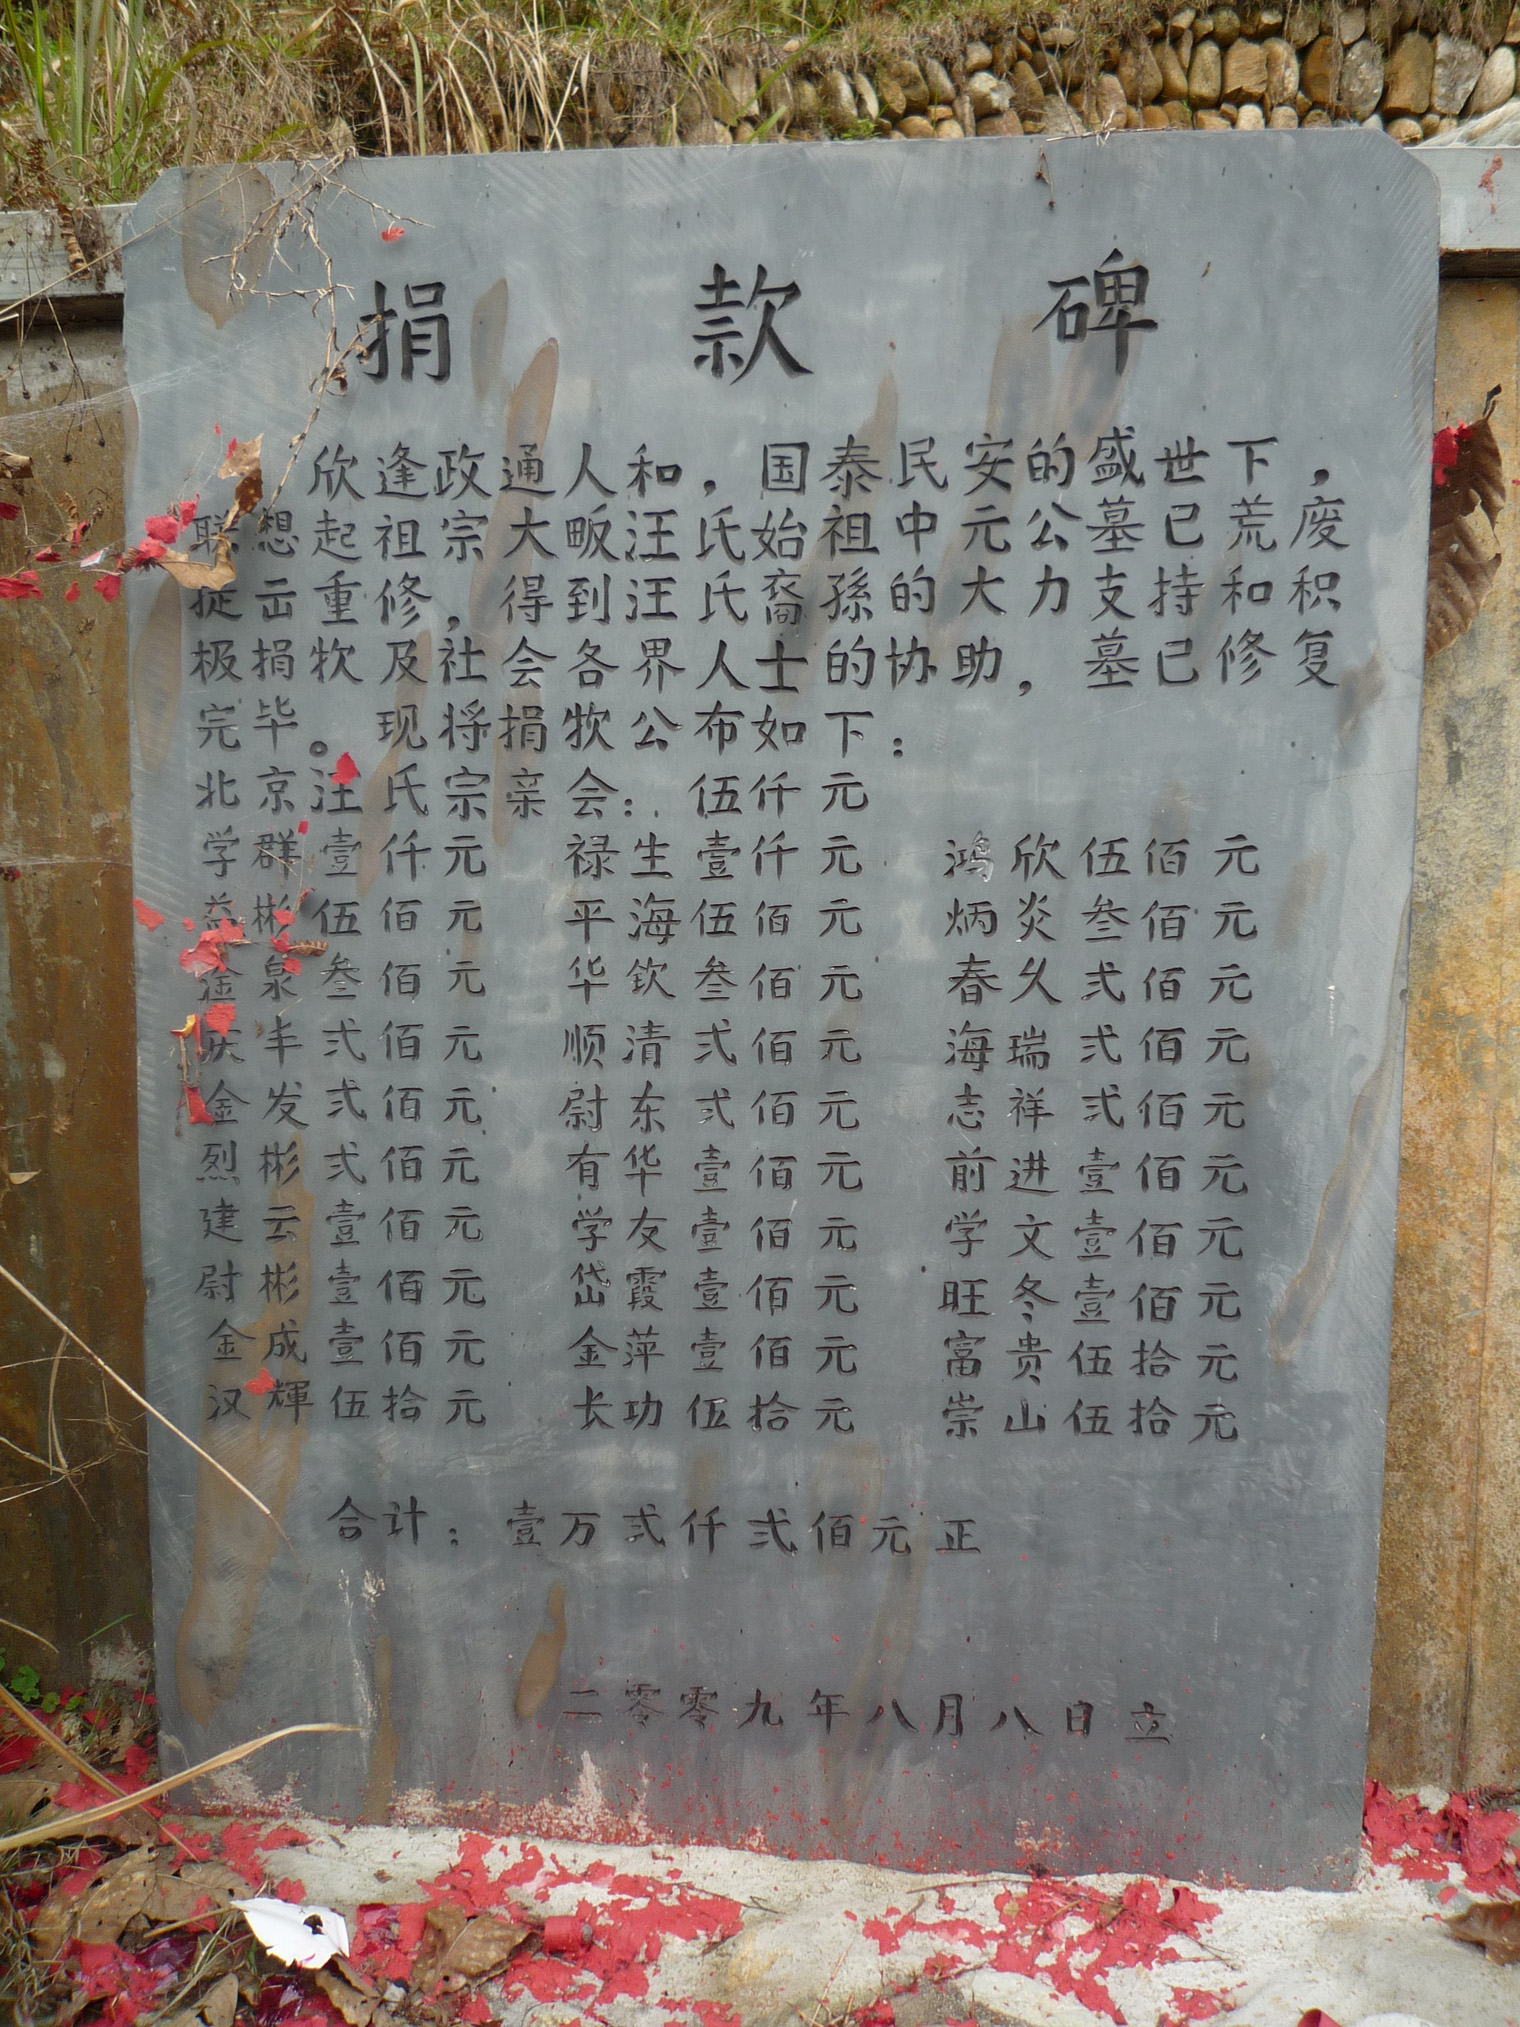 捐款碑
欣逢政通人和，国泰民安的盛世下，
联想起祖宗大畈汪氏始祖中元公墓已荒废
提出重修，得到汪氏裔孫的大力支持和积
极捐款及社会各界人士的协助，墓已修复
完毕。现将捐款公布如下：
北京汪氏宗亲会：伍仟元
学群壹仟元 禄生壹仟元 鸿欣伍佰元
益彬伍佰元 平海伍佰元 炳炎叁佰元
淦泉叁佰元 华钦叁佰元 春久弍佰元
庆丰弍佰元 顺清弍佰元 海瑞弍佰元
金发弍佰元 尉东弍佰元 志祥弍佰元
烈彬弍佰元 有华壹佰元 前进壹佰元
建云壹佰元 学友壹佰元 学文壹佰元
尉彬壹佰元 岱霞壹佰元 旺冬壹佰元
金成壹佰元 金萍壹佰元 富贵伍拾元
汉輝伍拾元 长功伍拾元 崇山伍拾元
合计：壹万弍仟弍佰元正
二零零九年八月八日立